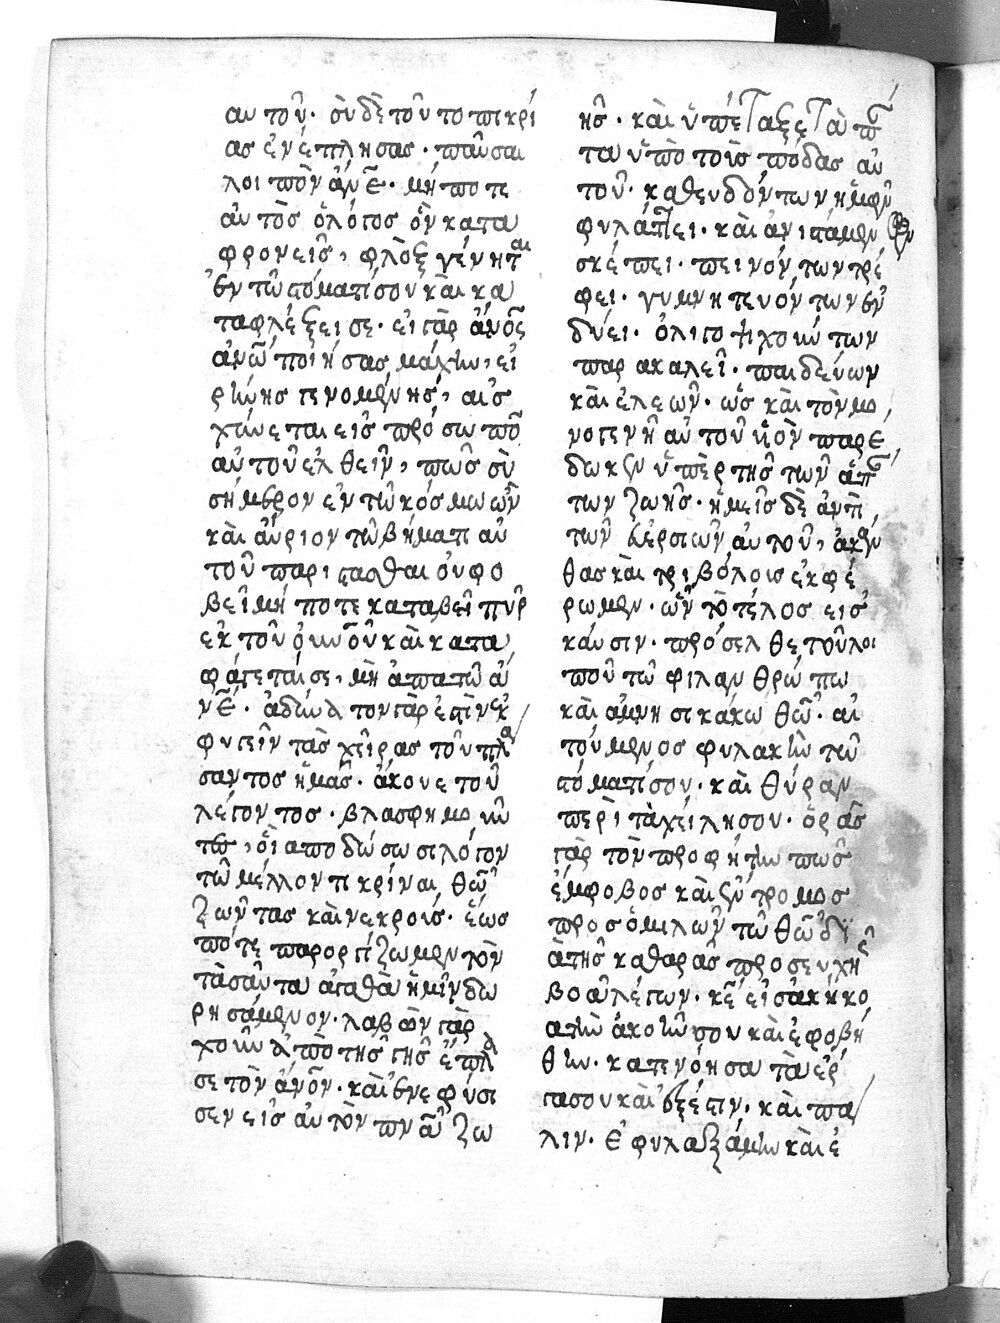 αυτοῦ· οὐδὲ τοῦτο πικρί
ας ἐνέπλησας· παῦσαι
λοιπὸν ἄνε· μήποτε
αὐτὸς ὁ λόγος ὃν κατα
φρονεῖς, φλὸξ γένηται
ἐν τῶ στόματί σου καὶ κα
ταφλέξει σε· εἰ γὰρ ἄνος
ἀνω ποιήσας μάχην, εἰ
ρήνης γενομένης, αἰσ
χύνεται εἰς πρόσωπο
αὐτοῦ ἐλθεῖν, πῶς σὺ
σήμερον ἐν τῶ κόσμω ὢν
καὶ αὔριον τῶ βήματι αὐ
τοῦ παρίστασθαι οὐ φο
βεῖ μή ποτε καταβεῖ πῦρ
ἐκ τοῦ οὐνοῦ καὶ κατα
φάγεταί σε, μὴ ἀπατῶ ἄ
νε· ἀδύνατον γάρ ἐστιν ἐκ
φυγεῖν τὰς χεῖρας τοῦ πλά
σαντος ἡμᾶς· ἄκουε τοῦ
λέγοντος· βλασφημούν
των, οἳ ἀποδώσωσι λόγον
τῶ μέλλοντι κρίναι θῶ
ζῶντας καὶ νεκρούς· ἕως
πότε παροργίζωμεν τὸν
τὰ σαῦτα ἀγαθὰ ἡμῖν δω
ρησάμενον· λαβὼν γὰρ
χοῦν ἀπὸ τῆς γῆς ἔπλα
σε τὸν ἄνον· καὶ ἐνεφύσι
σεν εἰς αὐτὸν πνὰ ζω
ῆς· καὶ ὑπέταξε τὰ πά
τα ὑπὸ τοὺς πόδας αὐ
τοῦ· καθευδόντων ἡμῶν
φυλάττει· καὶ ἀνιστάμενον
σκέπει· πεινούντων τρέ
φει· γυμνητευούντων ἐν
δύει· ὀλιγοψιχούντων
παρακαλεῖ· παιδεύων
καὶ ἐλεῶν· ὡς καὶ τὸν μο
νογενῆ αὐτοῦ υἱὸν παρέ
δωκεν ὑπὲρ τῆς τῶν ἁπά
των ζωῆς· ἡμεῖς δὲ ἀντὶ
τῶν εὐεργσιῶν αὐτοῦ, ἀκάν
θας καὶ τριβόλοις ἐκφέ
ρωμεν· ὧν τὸ τέλος εἰς
καύσιν· πρόσελθε τοῦ λοι
ποῦ τῶ φιλανθρώπω
καὶ ἀμνησικάκω θῶ· αἰ
τούμενος φυλακὴν τῶ
στόματί σου· καὶ θύραν
περὶ τὰ χείλη σου· ὁρᾶς
γὰρ τὸν προφήτην πῶς
ἔμφοβος καὶ ἔντρομος
προσομιλῶν τῶ θῶ δι
ὰ τῆς καθαρᾶς προσευχῆς
βοᾶ λέγων· κε εἰσακήκο
α τὴν ἀκοήν σου καὶ ἐφοβή
θην· κατενόησα τὰ ἔρ
γα σου καὶ ἐξέστην· καὶ πά
λιν· ἐφυλαξάμην καὶ ἐ